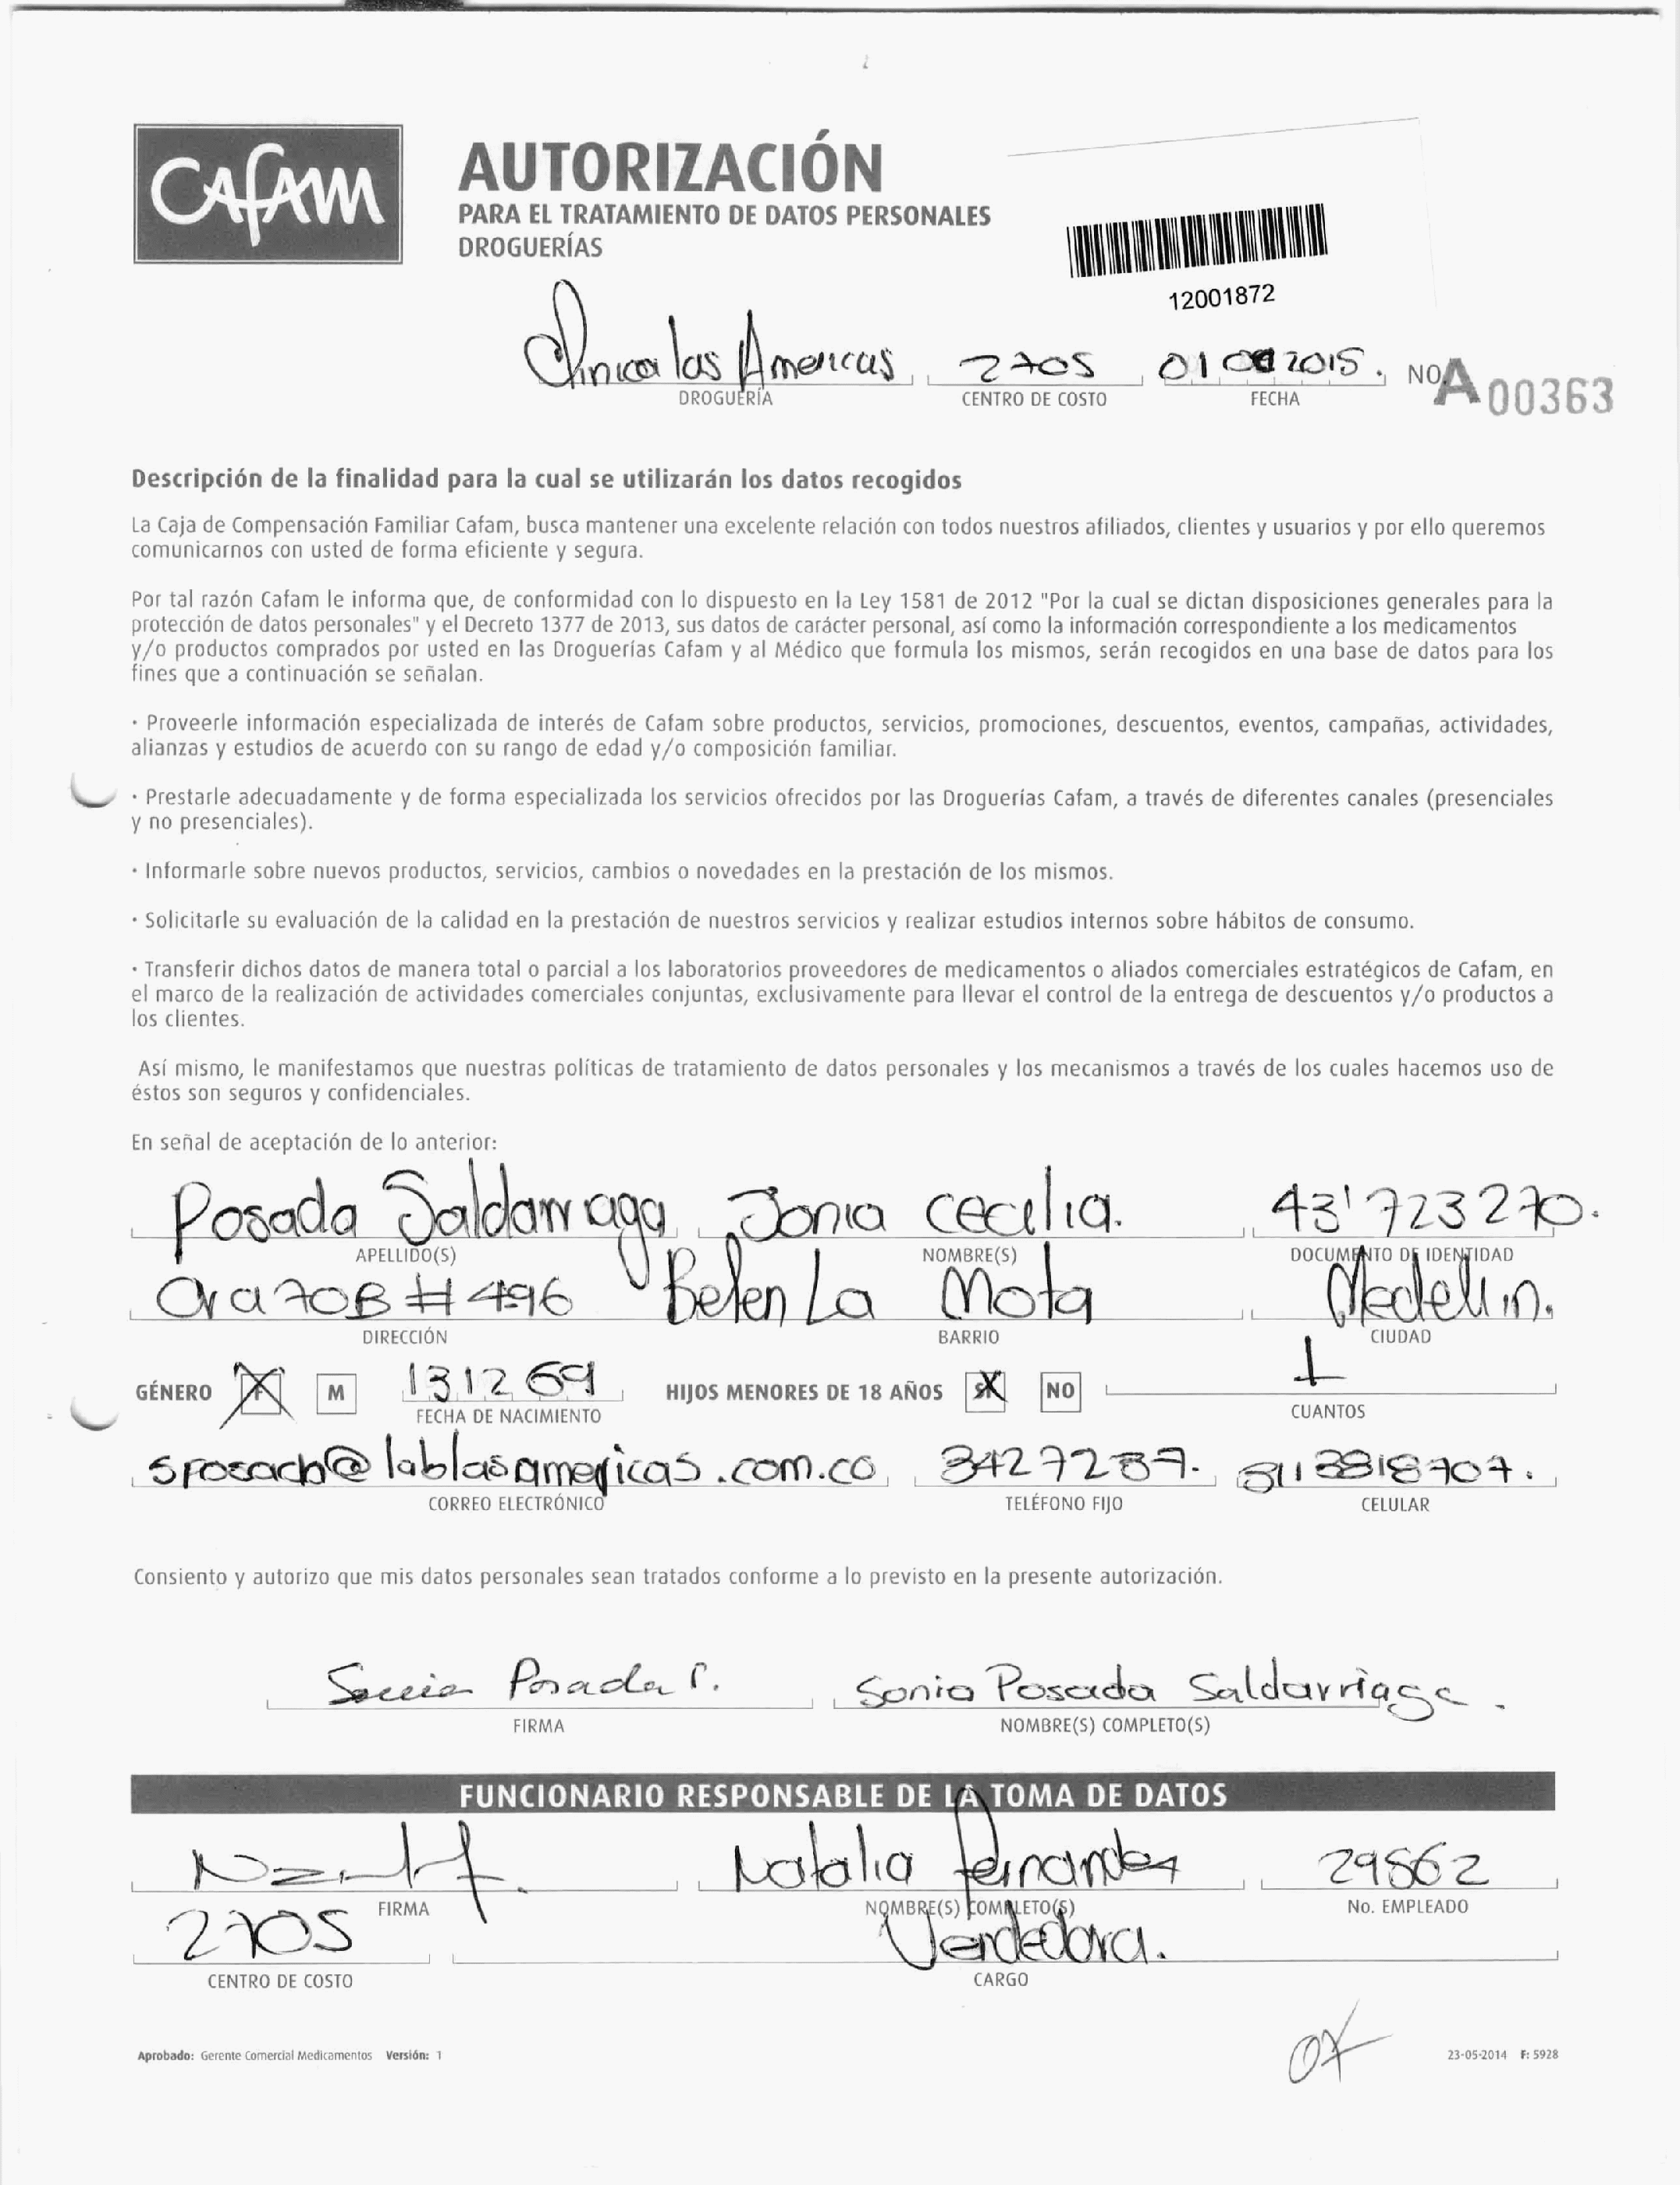 CAFAM
AUTORIZACIÓN
PARA EL TRATAMIENTO DE DATOS PERSONALES
DROGUERÍAS
12001872
Clinica las Americas 2705 01 2015. NO. A 00363
DROGUERÍA CENTRO DE COSTO FECHA
Descripción de la finalidad para la cual se utilizarán los datos recogidos
La Caja de Compensación Familiar Cafam, busca mantener una excelente relación con todos nuestros afiliados, clientes y usuarios y por ello queremos
comunicarnos con usted de forma eficiente y segura.
Por tal razón Cafam le informa que, de conformidad con lo dispuesto en la Ley 1581 de 2012 "Por la cual se dictan disposiciones generales para la
protección de datos personales" y el Decreto 1377 de 2013, sus datos de carácter personal, así como la información correspondiente a los medicamentos
y/o productos comprados por usted en las Droguerías Cafam y al Médico que formula los mismos, serán recogidos en una base de datos para los
fines que a continuación se señalan.
· Proveerle información especializada de interés de Cafam sobre productos, servicios, promociones, descuentos, eventos, campañas, actividades,
alianzas y estudios de acuerdo con su rango de edad y/o composición familiar.
· Prestarle adecuadamente y de forma especializada los servicios ofrecidos por las Droguerías Cafam, a través de diferentes canales (presenciales
y no presenciales).
· Informarle sobre nuevos productos, servicios, cambios o novedades en la prestación de los mismos.
· Solicitarle su evaluación de la calidad en la prestación de nuestros servicios y realizar estudios internos sobre hábitos de consumo.
· Transferir dichos datos de manera total o parcial a los laboratorios proveedores de medicamentos o aliados comerciales estratégicos de Cafam, en
el marco de la realización de actividades comerciales conjuntas, exclusivamente para llevar el control de la entrega de descuentos y/o productos a
los clientes.
Así mismo, le manifestamos que nuestras políticas de tratamiento de datos personales y los mecanismos a través de los cuales hacemos uso de
éstos son seguros y confidenciales.
En señal de aceptación de lo anterior:
Posada Saldarriaga Sonia cecelia. 43'723270.
APELLIDO(S) NOMBRE(S) DOCUMENTO DE IDENTIDAD
Cra 70B # 496 Belen La Mota Medellin.
DIRECCIÓN BARRIO CIUDAD
GÉNERO F M 131269 HIJOS MENORES DE 18 AÑOS SI NO 1
FECHA DE NACIMIENTO CUANTOS
@lablasamericas.com.co 3427287. 3113818707.
CORREO ELECTRÓNICO TELÉFONO FIJO CELULAR
Consiento y autorizo que mis datos personales sean tratados conforme a lo previsto en la presente autorización.
Sonia Posada S. Sonia Posada Saldarriaga.
FIRMA NOMBRE(S) COMPLETO(S)
FUNCIONARIO RESPONSABLE DE LA TOMA DE DATOS
Natalia Fernandez 29562
FIRMA NOMBRE(S) COMPLETO(S) No. EMPLEADO
2705 Vendedora.
CENTRO DE COSTO CARGO
OK
Aprobado: Gerente Comercial Medicamentos Versión: 1 23-05-2014 F: 5928